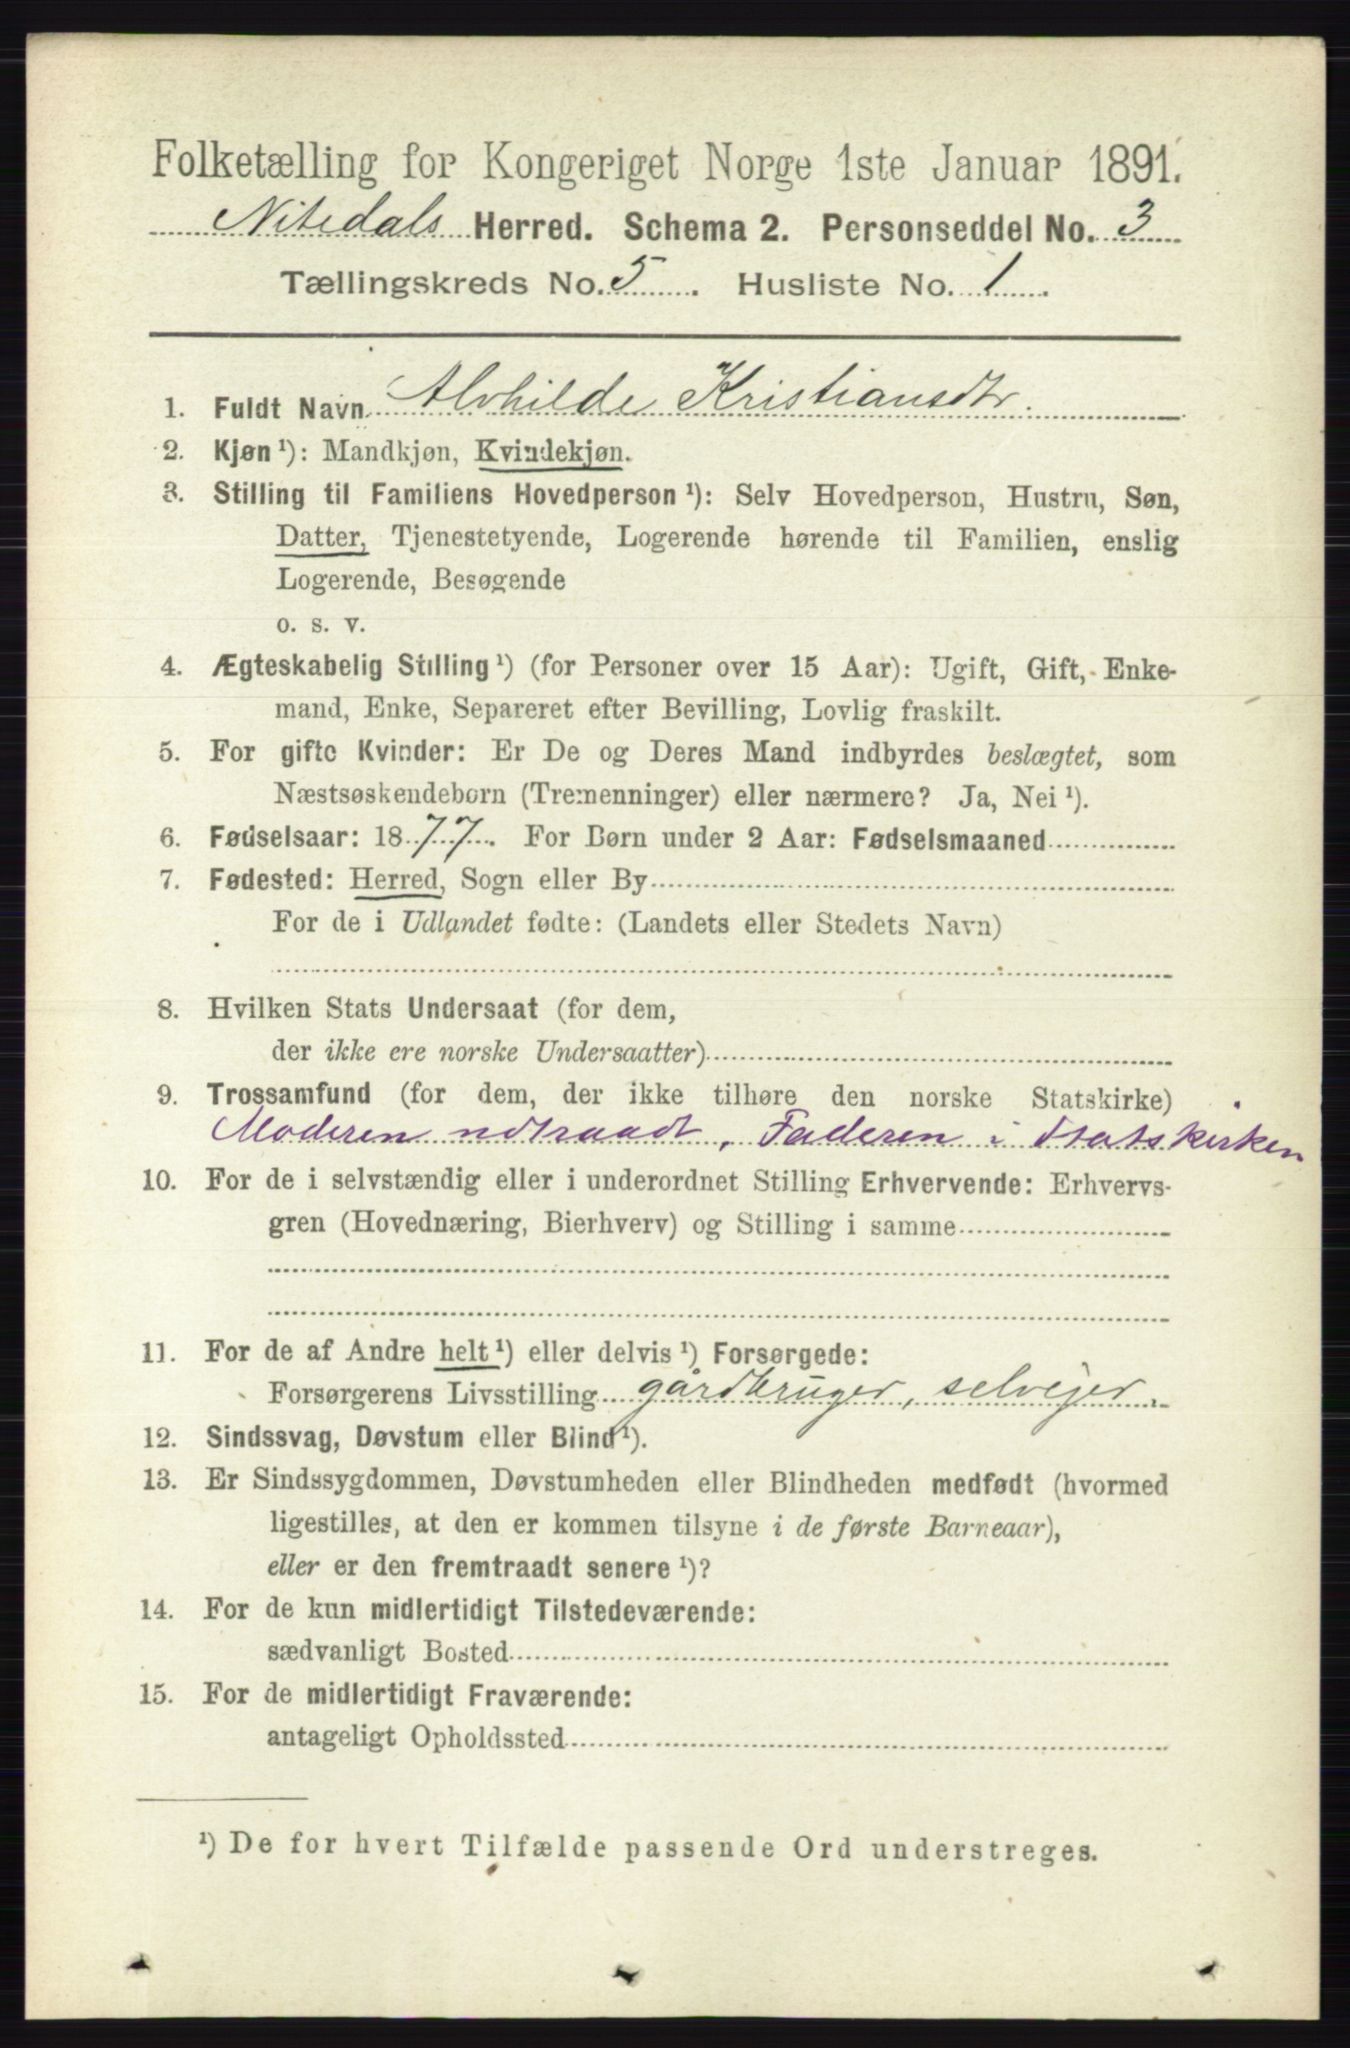 Folketælling for Kongeriget Norge 1ste Januar 1891.
Nitedals Herred. Schema 2. Personseddel No. 3
Tællingskreds No. 5. Husliste No. 1.
1. Fuldt Navn Alvhilde Kristiansdtr.
2. Kjøn ¹): Mandkjøn, Kvindekjøn.
3. Stilling til Familiens Hovedperson ¹): Selv Hovedperson, Hustru, Søn,
Datter, Tjenestetyende, Logerende hørende til Familien, enslig
Logerende, Besøgende
o. s. v.
4. Ægteskabelig Stilling ¹) (for Personer over 15 Aar): Ugift, Gift, Enke-
mand, Enke, Separeret efter Bevilling, Lovlig fraskilt.
5. For gifte Kvinder: Er De og Deres Mand indbyrdes beslægtet, som
Næstsøskendebørn (Tremenninger) eller nærmere? Ja, Nei ¹).
6. Fødselsaar: 1877. For Børn under 2 Aar: Fødselsmaaned
7. Fødested: Herred, Sogn eller By
For de i Udlandet fødte: (Landets eller Stedets Navn)
8. Hvilken Stats Undersaat (for dem,
der ikke ere norske Undersaatter)
9. Trossamfund (for dem, der ikke tilhøre den norske Statskirke)
Moderen udtraadt, Faderen i Statskirken
10. For de i selvstændig eller i underordnet Stilling Erhvervende: Erhvervs-
gren (Hovednæring, Bierhverv) og Stilling i samme
11. For de af Andre helt ¹) eller delvis ¹) Forsørgede:
Forsørgerens Livsstilling gårdbruger, selvejer.
12. Sindssvag, Døvstum eller Blind ¹).
13. Er Sindssygdommen, Døvstumheden eller Blindheden medfødt (hvormed
ligestilles, at den er kommen tilsyne i de første Barneaar),
eller er den fremtraadt senere ¹)?
14. For de kun midlertidigt Tilstedeværende:
sædvanligt Bosted
15. For de midlertidigt Fraværende:
antageligt Opholdssted
¹) De for hvert Tilfælde passende Ord understreges.